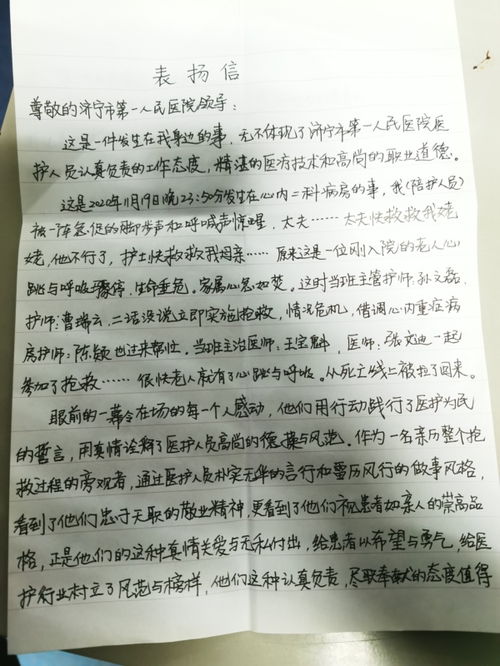 表扬信
尊敬的济宁市第一人民医院领导：
这是一件发生在我身边的事，无不体现了济宁市第一人民医院医
护人员认真负责的工作态度，精湛的医疗技术和高尚的职业道德。
这是2020年11月19日晚23:50分发生在心内二科病房的事，我(陪护人员)
被一阵急促的脚步声和呼喊声惊醒，大夫……大夫快救救我姥
姥，他不行了，护士快救救我母亲……原来这是一位刚入院的老人心
跳与呼吸骤停，生命垂危。家属心急如焚。这时当班主管护师：孙文磊
护师：曹瑞云，二话没说立即实施抢救，情况危机，借调心内重症病
房护师：陈颖也过来帮忙。当班主治医师：王宝魁，医师：张文迪一起
参加了抢救……很快老人就有了心跳与呼吸。从死亡线上被拉了回来。
眼前的一幕令在场的每一个人感动，他们用行动践行了医护为民
的誓言，用真情诠释了医护人员高尚的德操与风范。作为一名亲历整个抢
救过程的旁观者，通过医护人员朴实无华的言行和雷历风行的做事风格，
看到了他们忠于天职的敬业精神，更看到了他们视患者如亲人的崇高品
格，正是他们的这种真情关爱与无私付出，给患者以希望与勇气，给医
护行业树立了风范与榜样，他们这种认真负责，尽职奉献的态度值得